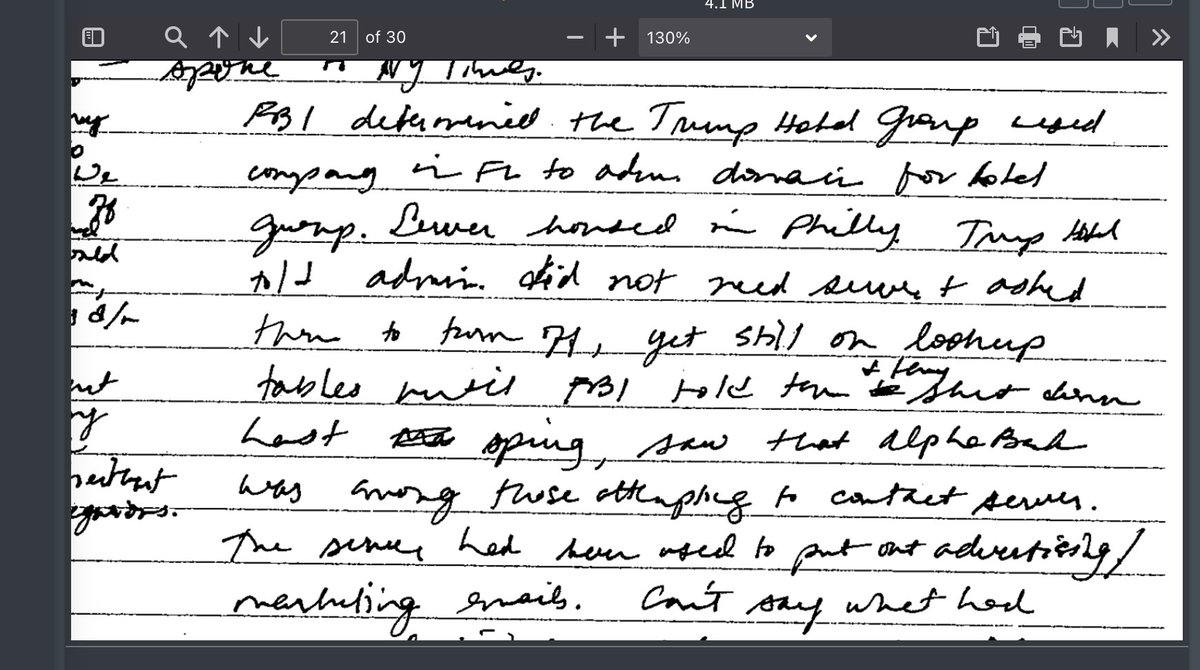 4.1 MB
21 of 30
130%
spoke to NY Times.
FBI determined the Trump Hotel Group used
company in FL to adm. domain for hotel
group. Server housed in Philly. Trump Hotel
told admin. did not need server & asked
them to turn off, yet still on lookup
tables until FBI told them & they shut down
Last spring, saw that AlphaBank
was among those attempting to contact server.
The server had been used to put out advertising/
marketing emails. Can't say what had